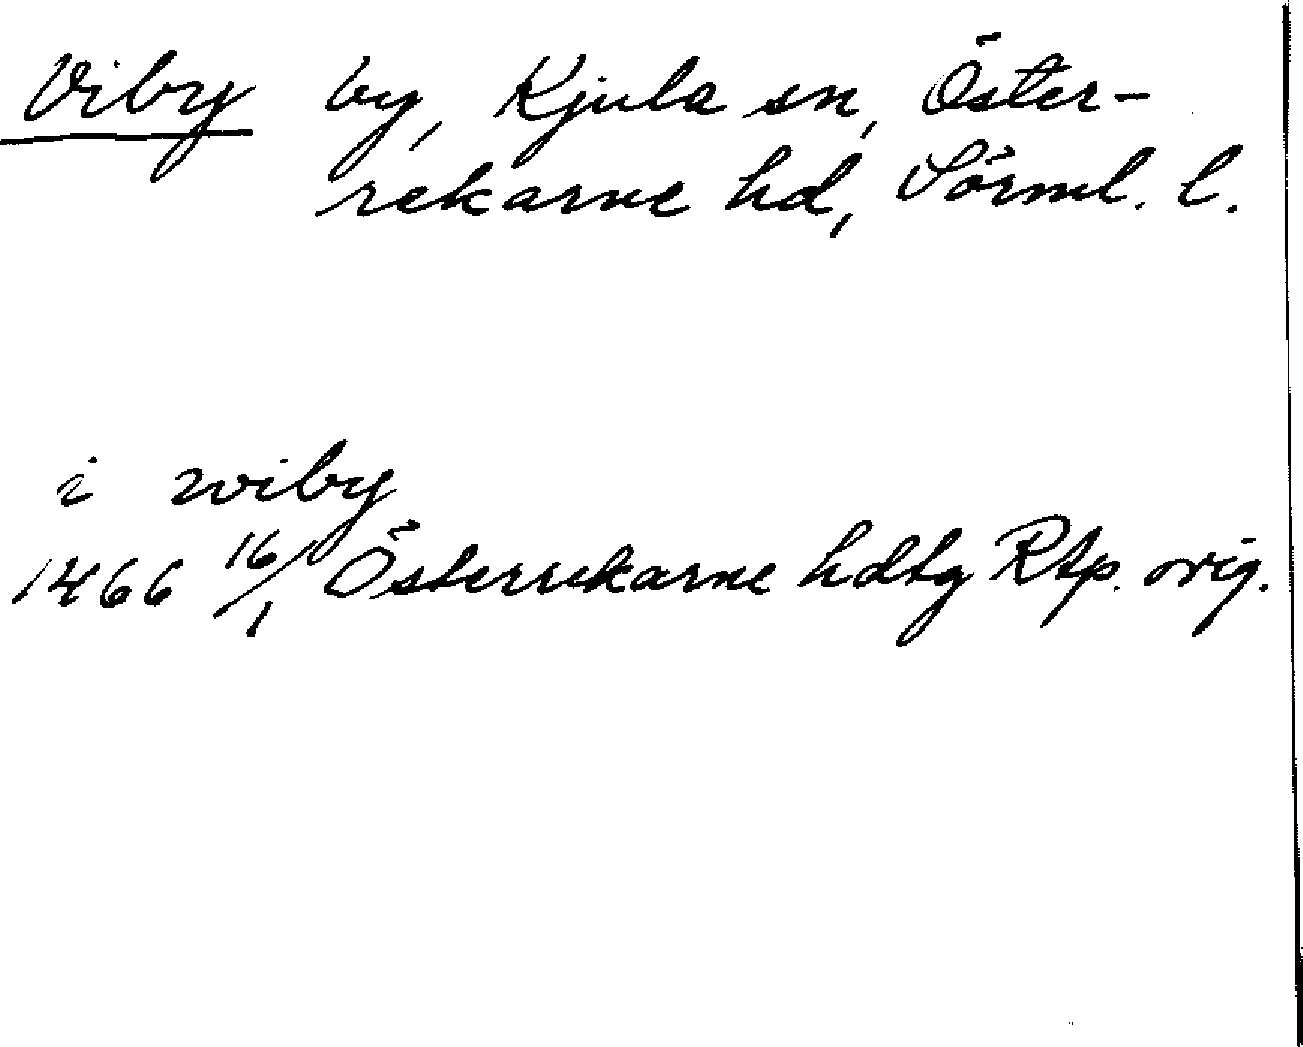 Viby by, Kjula sn, Öster-
rekarne hd, Sörml. l.
i wiby
1466 16/1 Österrekarne hdtg Rtp. orig.